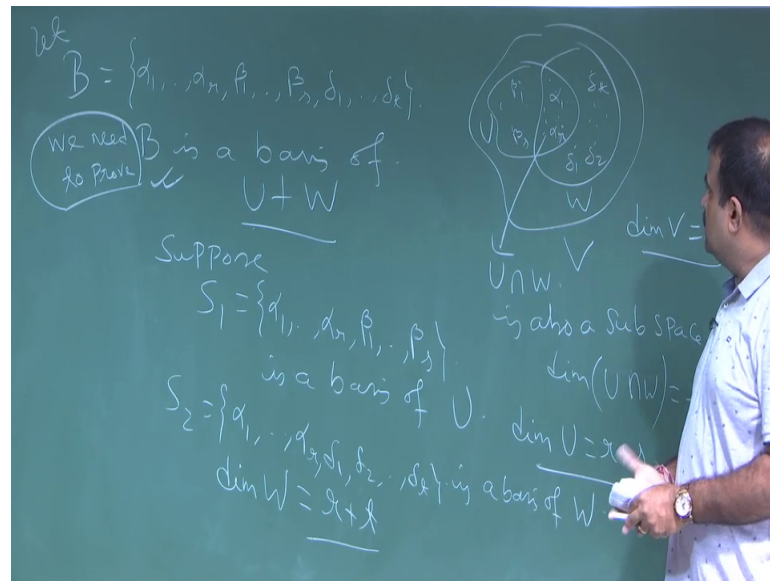 Let
B = {α₁, .., αᵣ, β₁, .., βₛ, δ₁, .., δₜ}.
We need
to prove
B is a basis of
U + W
Suppose
S₁ = {α₁, .., αᵣ, β₁, .., βₛ}
is a basis of U.
S₂ = {α₁, .., αᵣ, δ₁, δ₂, .., δₜ} is a basis of W
dim W = r + t
β₁ α₁ δₜ
U
βₛ αᵣ δ₁ δ₂
W
V
U∩W.
dim V =
is also a Subspace
dim(U∩W) =
dim U = r